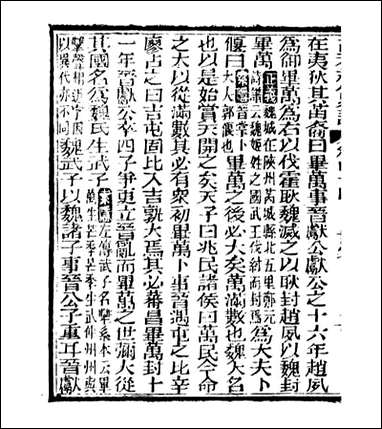 在夷狄其苗裔曰畢萬事晉獻公獻公之十六年趙夙
為御畢萬為右以伐霍耿魏滅之以耿封趙夙以魏封
畢萬正義魏城在陝州芮城縣北五里鄭元詩譜云魏姬姓之國武王伐紂而封焉為大夫卜
偃曰索隱晉掌卜大人郭偃也畢萬之後必大矣萬滿數也魏大名
也以是始賞天開之矣天子曰兆民諸侯曰萬民今命
之大以從滿數其必有眾初畢萬卜事晉遇屯之比辛
廖占之曰吉屯固比入吉孰大焉其必蕃昌畢萬封十
一年晉獻公卒四子爭更立晉亂而畢萬之世彌大從
其國名為魏氏生武子索隱左傳武子名犨系本云畢萬生芒季芒季生武仲州州與
犨聲相近字異以異代亦不同魏武子以魏諸子事晉公子重耳晉獻